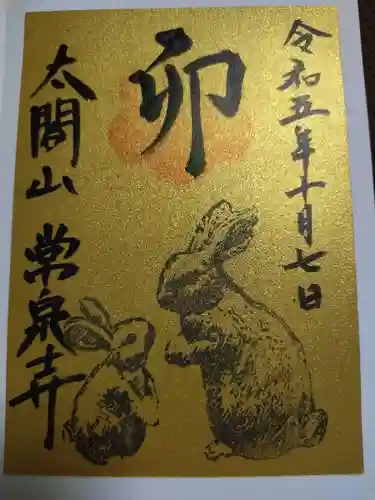 令和五年十月七日
卯
太閤山 常泉寺